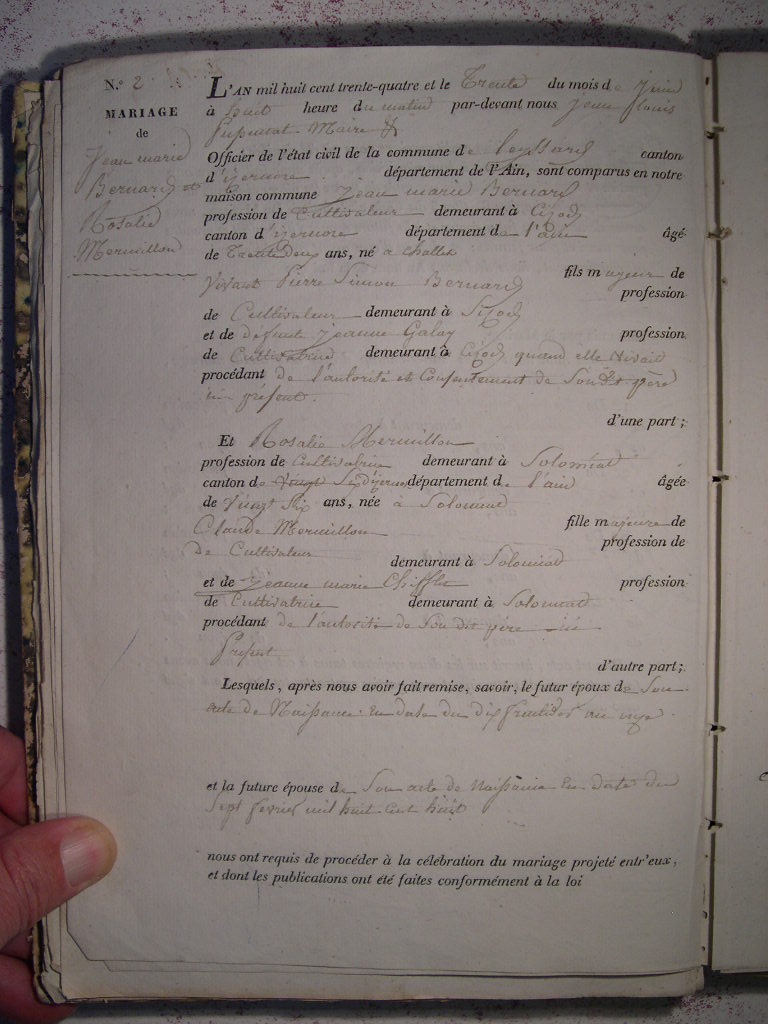 N.º 2
MARIAGE
de
Jean marie
Bernard et
Rosalie
Mermillon
L'AN mil huit cent trente-quatre et le Trente du mois de Juin
à huit heure du matin par-devant nous Jean Louis
Maire &
Officier de l'état civil de la commune de Leyssard canton
d'izernore département de l'Ain, sont comparus en notre
maison commune Jean marie Bernard
profession de Cultivateur demeurant à Cizod
canton d'izernore département de l'ain âgé
de Trente Deux ans, né à Challes
fils majeur de
Vivant Pierre Simon Bernard
profession
de Cultivateur demeurant à Sizod
et de défunte Jeanne Galay profession
de Cultivatrice demeurant à Cizod quand elle vivait
procédant de l'autorité et Consentement de Son dit père
ici présent.
d'une part;
Et Rosalie Mermillon
profession de Cultivatrice demeurant à Solomiat
canton d'izernore département de l'ain âgée
de Vingt Six ans, née à Solomiat
fille majeure de
Claude Mermillon
profession de
de Cultivateur
demeurant à Solomiat
et de Jeanne marie Chifflet profession
de Cultivatrice demeurant à Solomiat
procédant de l'autorité de Son dit père ici
Présent
d'autre part;
Lesquels, après nous avoir fait remise, savoir, le futur époux de Son
acte de Naissance en date du dix fructidor an onze
et la future épouse de Son acte de Naissance en date du
Sept fevrier mil huit cent huit
nous ont requis de procéder à la célébration du mariage projeté entr'eux,
et dont les publications ont été faites conformément à la loi